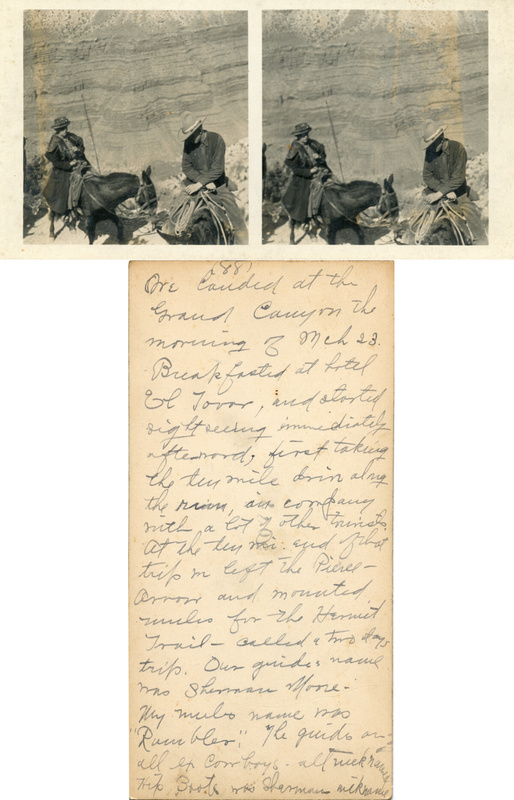 (88)
We landed at the
Grand Canyon the
morning of Mch 23.
Breakfasted at hotel
El Tovar, and started
sight seeing immediately
afterward, first taking
the ten mile drive along
the rim, in company
with a lot of other tourists.
At the ten mi. end of that
trip we left the Pierce-
Arrow and mounted
mules for the Hermit
Trail - called a two days
trip. Our guides name
was Sherman Moore.
My mules name was
"Rambler". The guides are
all ex cowboys.
was Sherman nickname